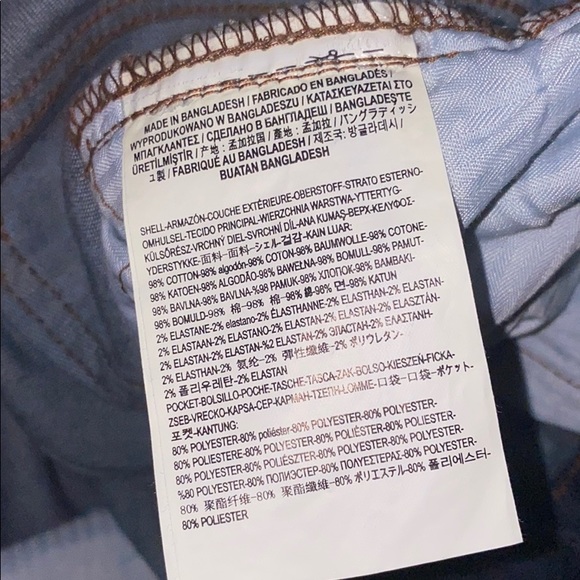 MADE IN BANGLADESH / FABRICADO EN BANGLADÉS /
WYPRODUKOWANO W BANGLADESZU / ΚΑΤΑΣΚΕΥΑΖΕΤΑΙ ΣΤΟ
ΜΠΑΓΚΛΑΝΤΕΣ / СДЕЛАНО В БАНГЛАДЕШ / BANGLADEŞ'TE
ÜRETİLMİŞTİR / 产地：孟加拉国 / 產地：孟加拉 / バングラディッ
ュ製 / FABRIQUÉ AU BANGLADESH / 제조국: 방글라데시 /
BUATAN BANGLADESH
SHELL-ARMAZÓN-COUCHE EXTÉRIEURE-OBERSTOFF-STRATO ESTERNO-
OMHULSEL-TECIDO PRINCIPAL-WIERZCHNIA WARSTWA-YTTERTYG-
KÜLSŐRÉSZ-VRCHNÝ DIEL-SVRCHNÍ DÍL-ANA KUMAŞ-ВЕРХ-ΚΕΛΥΦΟΣ-
YDERSTYKKE-面料-面料-シェル-겉감-KAIN LUAR:
98% COTTON-98% algodón-98% COTON-98% BAUMWOLLE-98% COTONE-
98% KATOEN-98% ALGODÃO-98% BAWEŁNA-98% BOMULL-98% PAMUT-
98% BAVLNA-98% BAVLNA-%98 PAMUK-98% ХЛОПОК-98% ΒΑΜΒΑΚΙ-
98% BOMULD-98% 棉-98% 棉-98% 綿-98% 면-98% KATUN
2% ELASTANE-2% elastano-2% ÉLASTHANNE-2% ELASTHAN-2% ELASTAN-
2% ELASTAAN-2% ELASTANO-2% ELASTAN-2% ELASTAN-2% ELASZTÁN-
2% ELASTAN-2% ELASTAN-%2 ELASTAN-2% ЭЛАСТАН-2% ΕΛΑΣΤΑΝΗ-
2% ELASTHAN-2% 氨纶-2% 彈性纖維-2% ポリウレタン-
2% 폴리우레탄-2% ELASTAN
POCKET-BOLSILLO-POCHE-TASCHE-TASCA-ZAK-BOLSO-KIESZEŃ-FICKA-
ZSEB-VRECKO-KAPSA-CEP-КАРМАН-ΤΣΕΠΗ-LOMME-口袋-口袋-ポケット-
포켓-KANTUNG:
80% POLYESTER-80% poliéster-80% POLYESTER-80% POLYESTER-
80% POLIESTERE-80% POLYESTER-80% POLIÉSTER-80% POLIESTER-
80% POLYESTER-80% POLIÉSZTER-80% POLYESTER-80% POLYESTER-
%80 POLYESTER-80% ПОЛИЭСТЕР-80% ΠΟΛΥΕΣΤΕΡΑΣ-80% POLYESTER-
80% 聚酯纤维-80% 聚酯纖維-80% ポリエステル-80% 폴리에스터-
80% POLYESTER